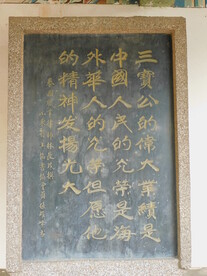 三寶公的偉大業績是
中國人民的光荣是海
外華人的光荣但愿他
的精神发揚光大